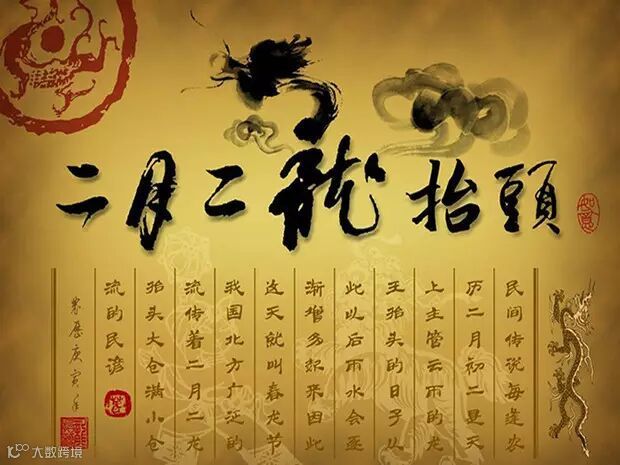 二月二龍抬頭
如意
民间传说每逢农
历二月初二是天
上主管云雨的龙
王抬头的日子从
此以后雨水会逐
渐增多起来因此
这天就叫春龙节
我国北方广泛的
流传着二月二龙
抬头大仓满小仓
流的民谚
农歷庚寅年
大数跨境